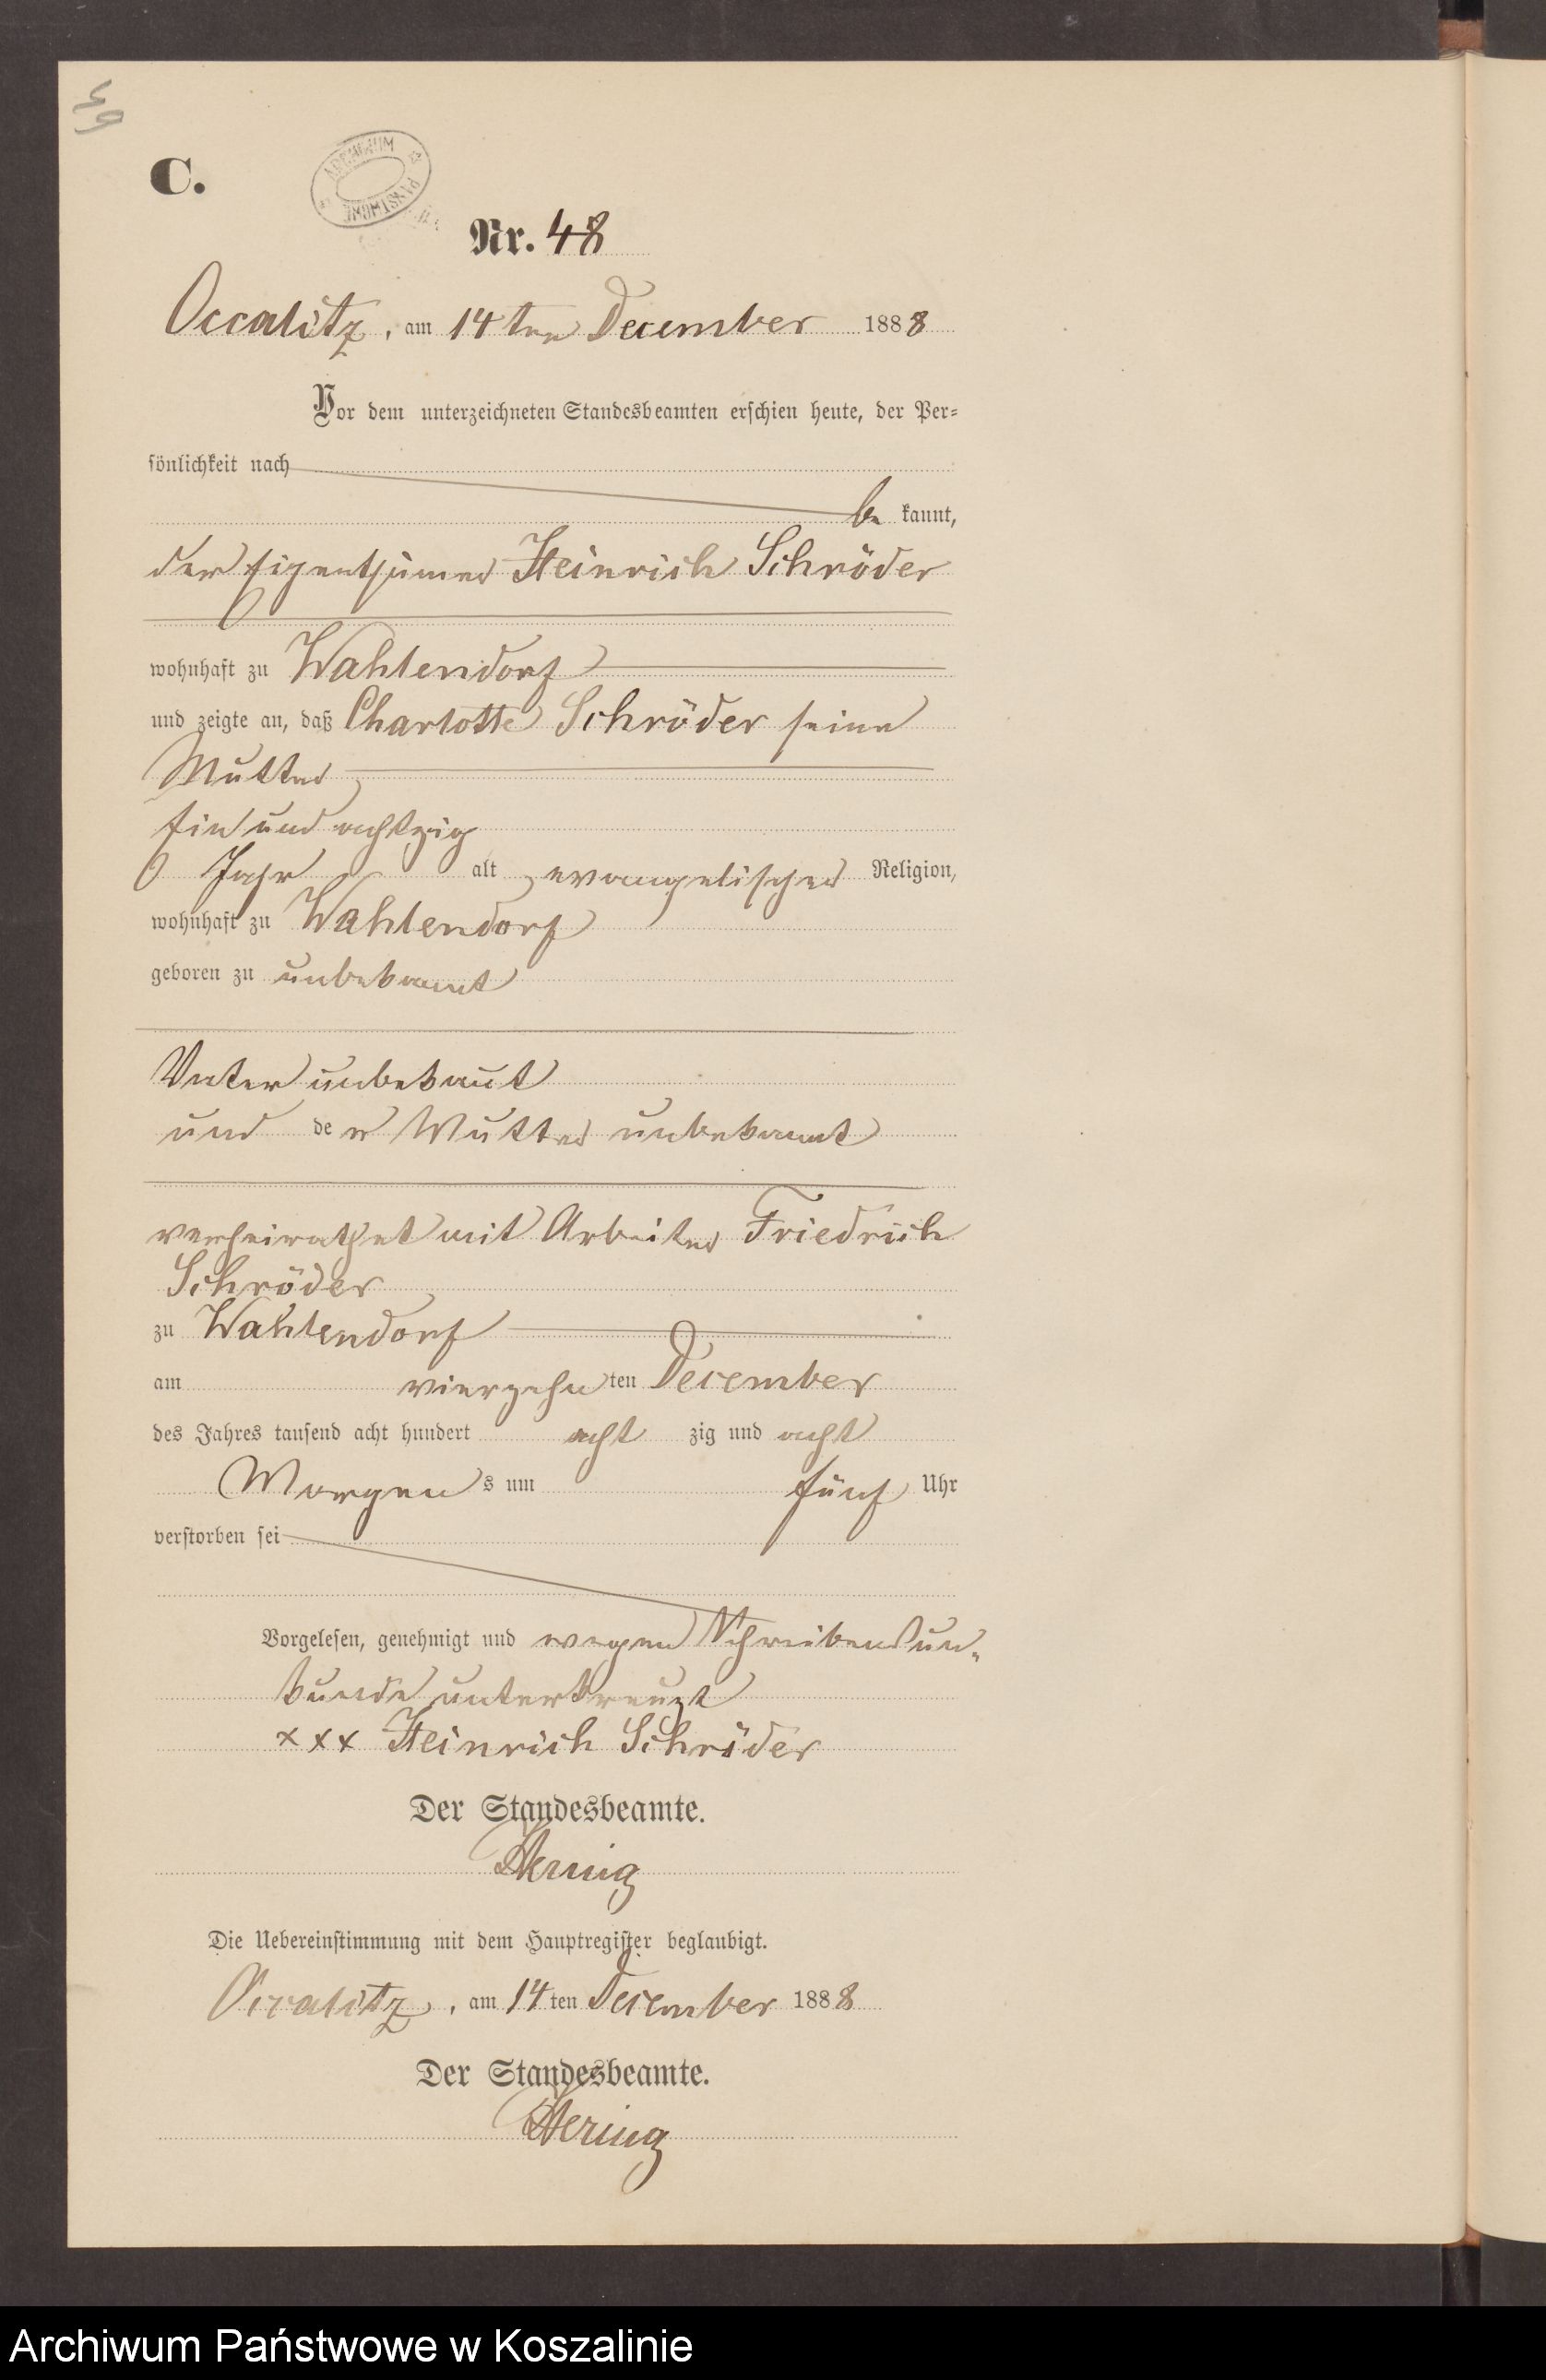 C.
ARCHIWUM PAŃSTWOWE
Nr. 48
Occalitz, am 14ten December 1888
Vor dem unterzeichneten Standesbeamten erschien heute, der Per-
sönlichkeit nach
be kannt,
der Eigenthümer Heinrich Schröder
wohnhaft zu Wahlendorf
und zeigte an, daß Charlotte Schröder seine
Mutter
Ein und achtzig
Jahr alt evangelischer Religion,
wohnhaft zu Wahlendorf
geboren zu unbekannt
Vater unbekannt
und der Mutter unbekannt
verheirathet mit Arbeiter Friedrich
Schröder
zu Wahlendorf
am vierzehn ten December
des Jahres tausend acht hundert acht zig und acht
Morgen s um fünf Uhr
verstorben sei
Vorgelesen, genehmigt und wegen Schreibensun-
kunde unterkreuzt
xxx Heinrich Schröder
Der Standesbeamte.
Hering
Die Uebereinstimmung mit dem Hauptregister beglaubigt.
Occalitz, am 14ten December 1888
Der Standesbeamte.
Hering
Archiwum Państwowe w Koszalinie